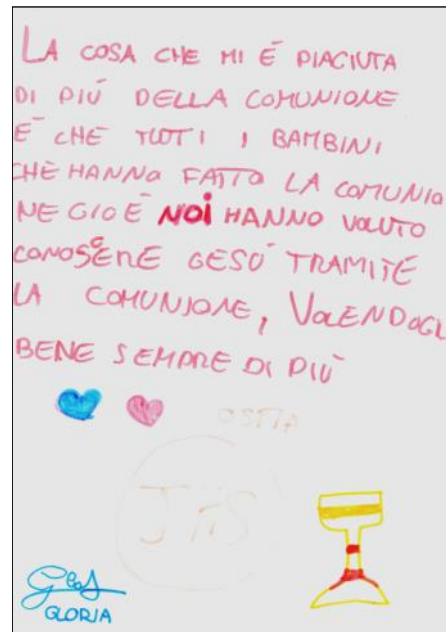 LA COSA CHE MI È PIACIUTA
DI PIÙ DELLA COMUNIONE
È CHE TUTTI I BAMBINI
CHE HANNO FATTO LA COMUNIO
NE CIOÈ NOI HANNO VOLUTO
CONOSCERE GESÙ TRAMITE
LA COMUNIONE, VOLENDOGLI
BENE SEMPRE DI PIÙ
OSTIA
JHS
GLORIA